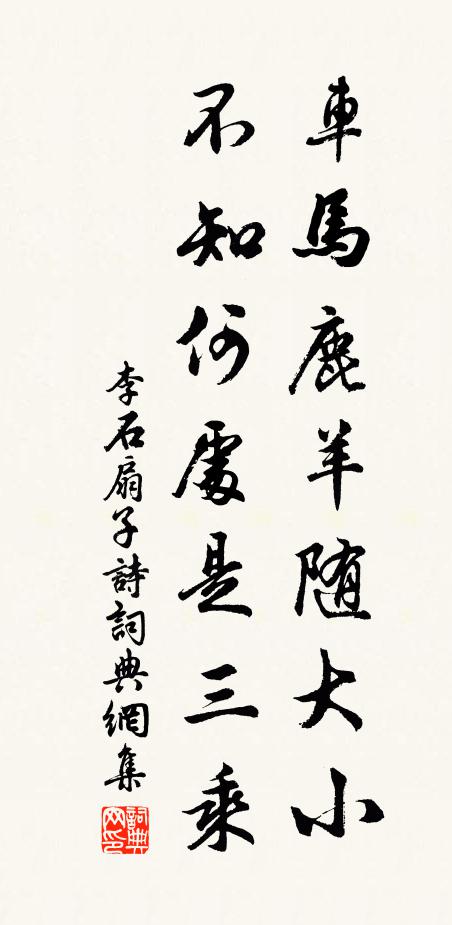 車馬鹿羊随大小
不知何處是三乘
李石扇子詩詞典網集
詞典網印